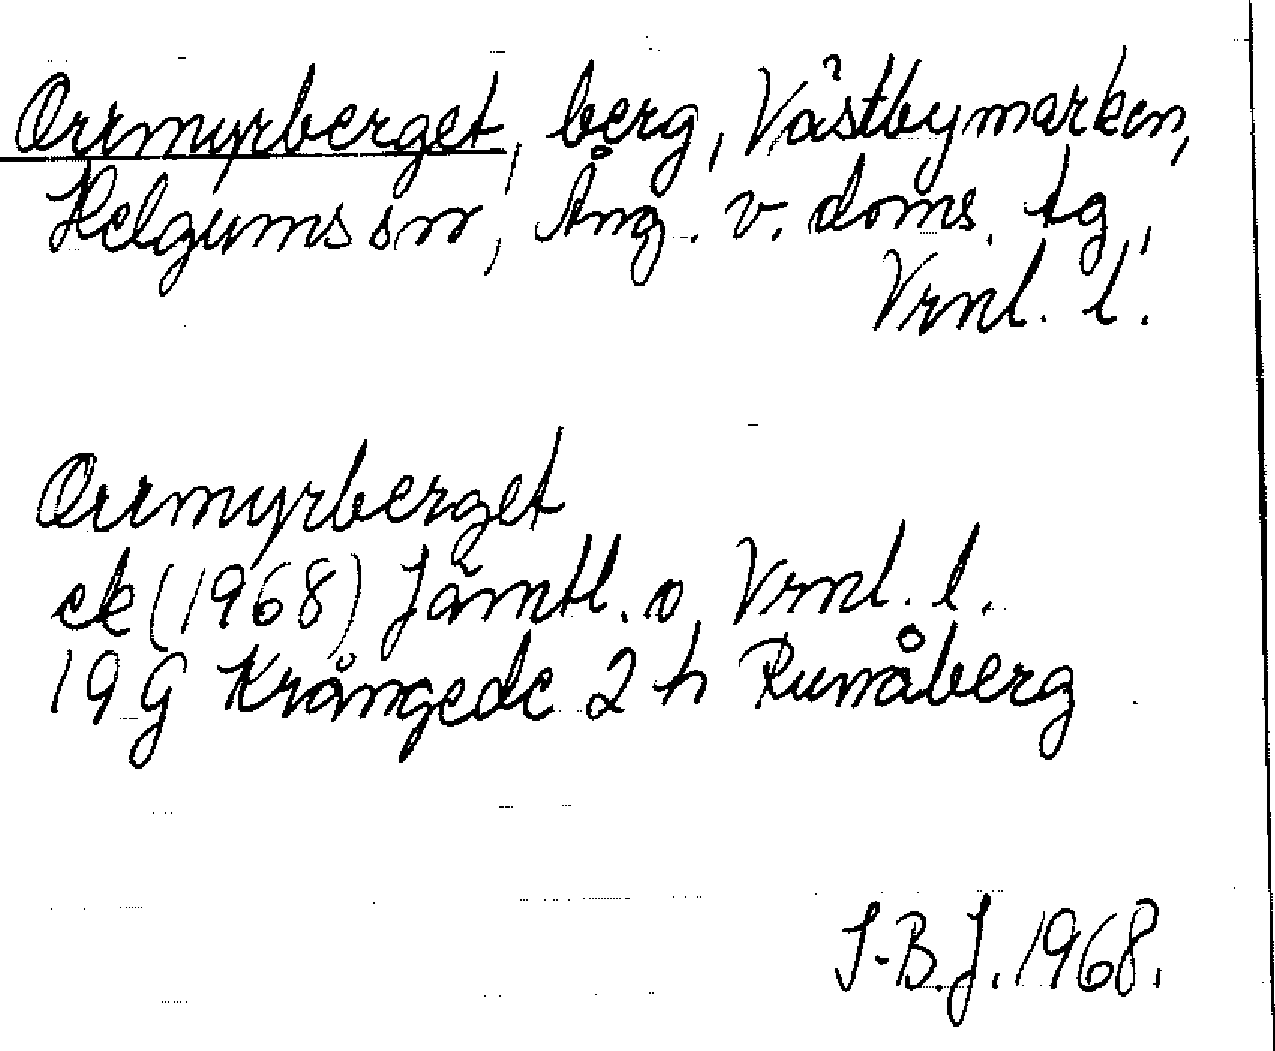 Orrmyrberget, berg, Västbymarken,
Helgums sn, Ång. v. doms. tg,
Vrnl. l.
Orrmyrberget
ek (1968) Jämtl. o. Vrnl. l.
19 G Krångede 2 h Runåberg
S-B.J. 1968.